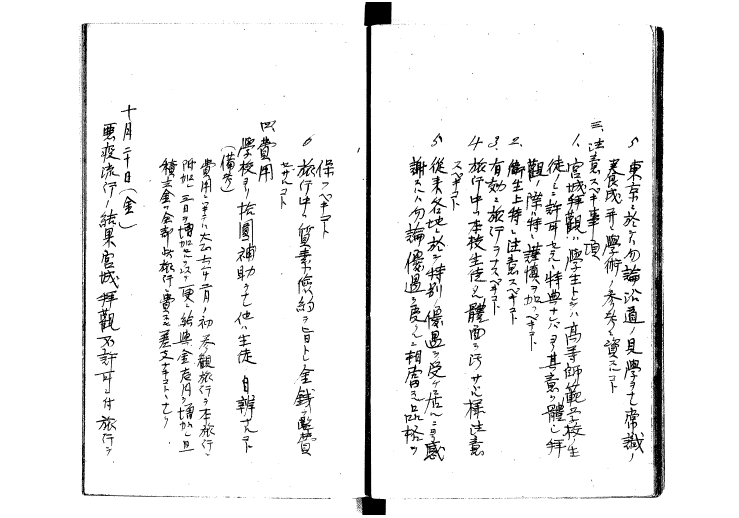 5 東京ニ於ケル勿論沿道ノ見學ヲモ常識ノ
養成並ニ學術ノ参考ニ資スルコト
三、注意スベキ事項
1、宮城拝觀ハ學生トシテハ高等師範學校生
徒ノミ許可セラルヽ特典ナレバヨク其意ヲ體シ拝
觀ノ際ハ特ニ謹慎ヲ加フベキコト
2、衛生上特ニ注意スベキコト
3、有効ニ旅行ヲナスベキコト
4 旅行中ハ本校生徒タル體面ヲ汚サヾル様注意
スベキコト
5 従来各地ニ於テ特別ノ優遇ヲ受ケ居ルニヨリ感
謝スルハ勿論優遇ニ相當スル品格ヲ
保ツベキコト
6 旅行中ハ質素倹約ヲ旨トシ金銭ヲ濫費
セザルコト
四、費用
學校ヨリ拾圓補助シテ他ハ生徒ノ自辨ナルコト
(備考)
費用ニ大正六年二月ノ初参觀旅行ヲ本旅行
三日ヲ増加セシヲ以テ更ニ給與金ヲ増加シ且
積立金ノ全部此旅行ノ費ニ
十月二十日(金)
悪疫流行ノ結果宮城拝觀不許可ニ付旅行ヲ